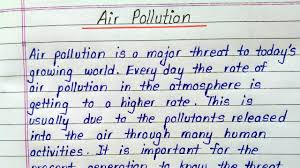 Air Pollution
Air pollution is a major threat to today's
growing world. Every day the rate of
air pollution in the atmosphere is
getting to a higher rate. This is
usually due to the pollutants released
into the air through many human
activities. It is important for the
present generation to know the threat